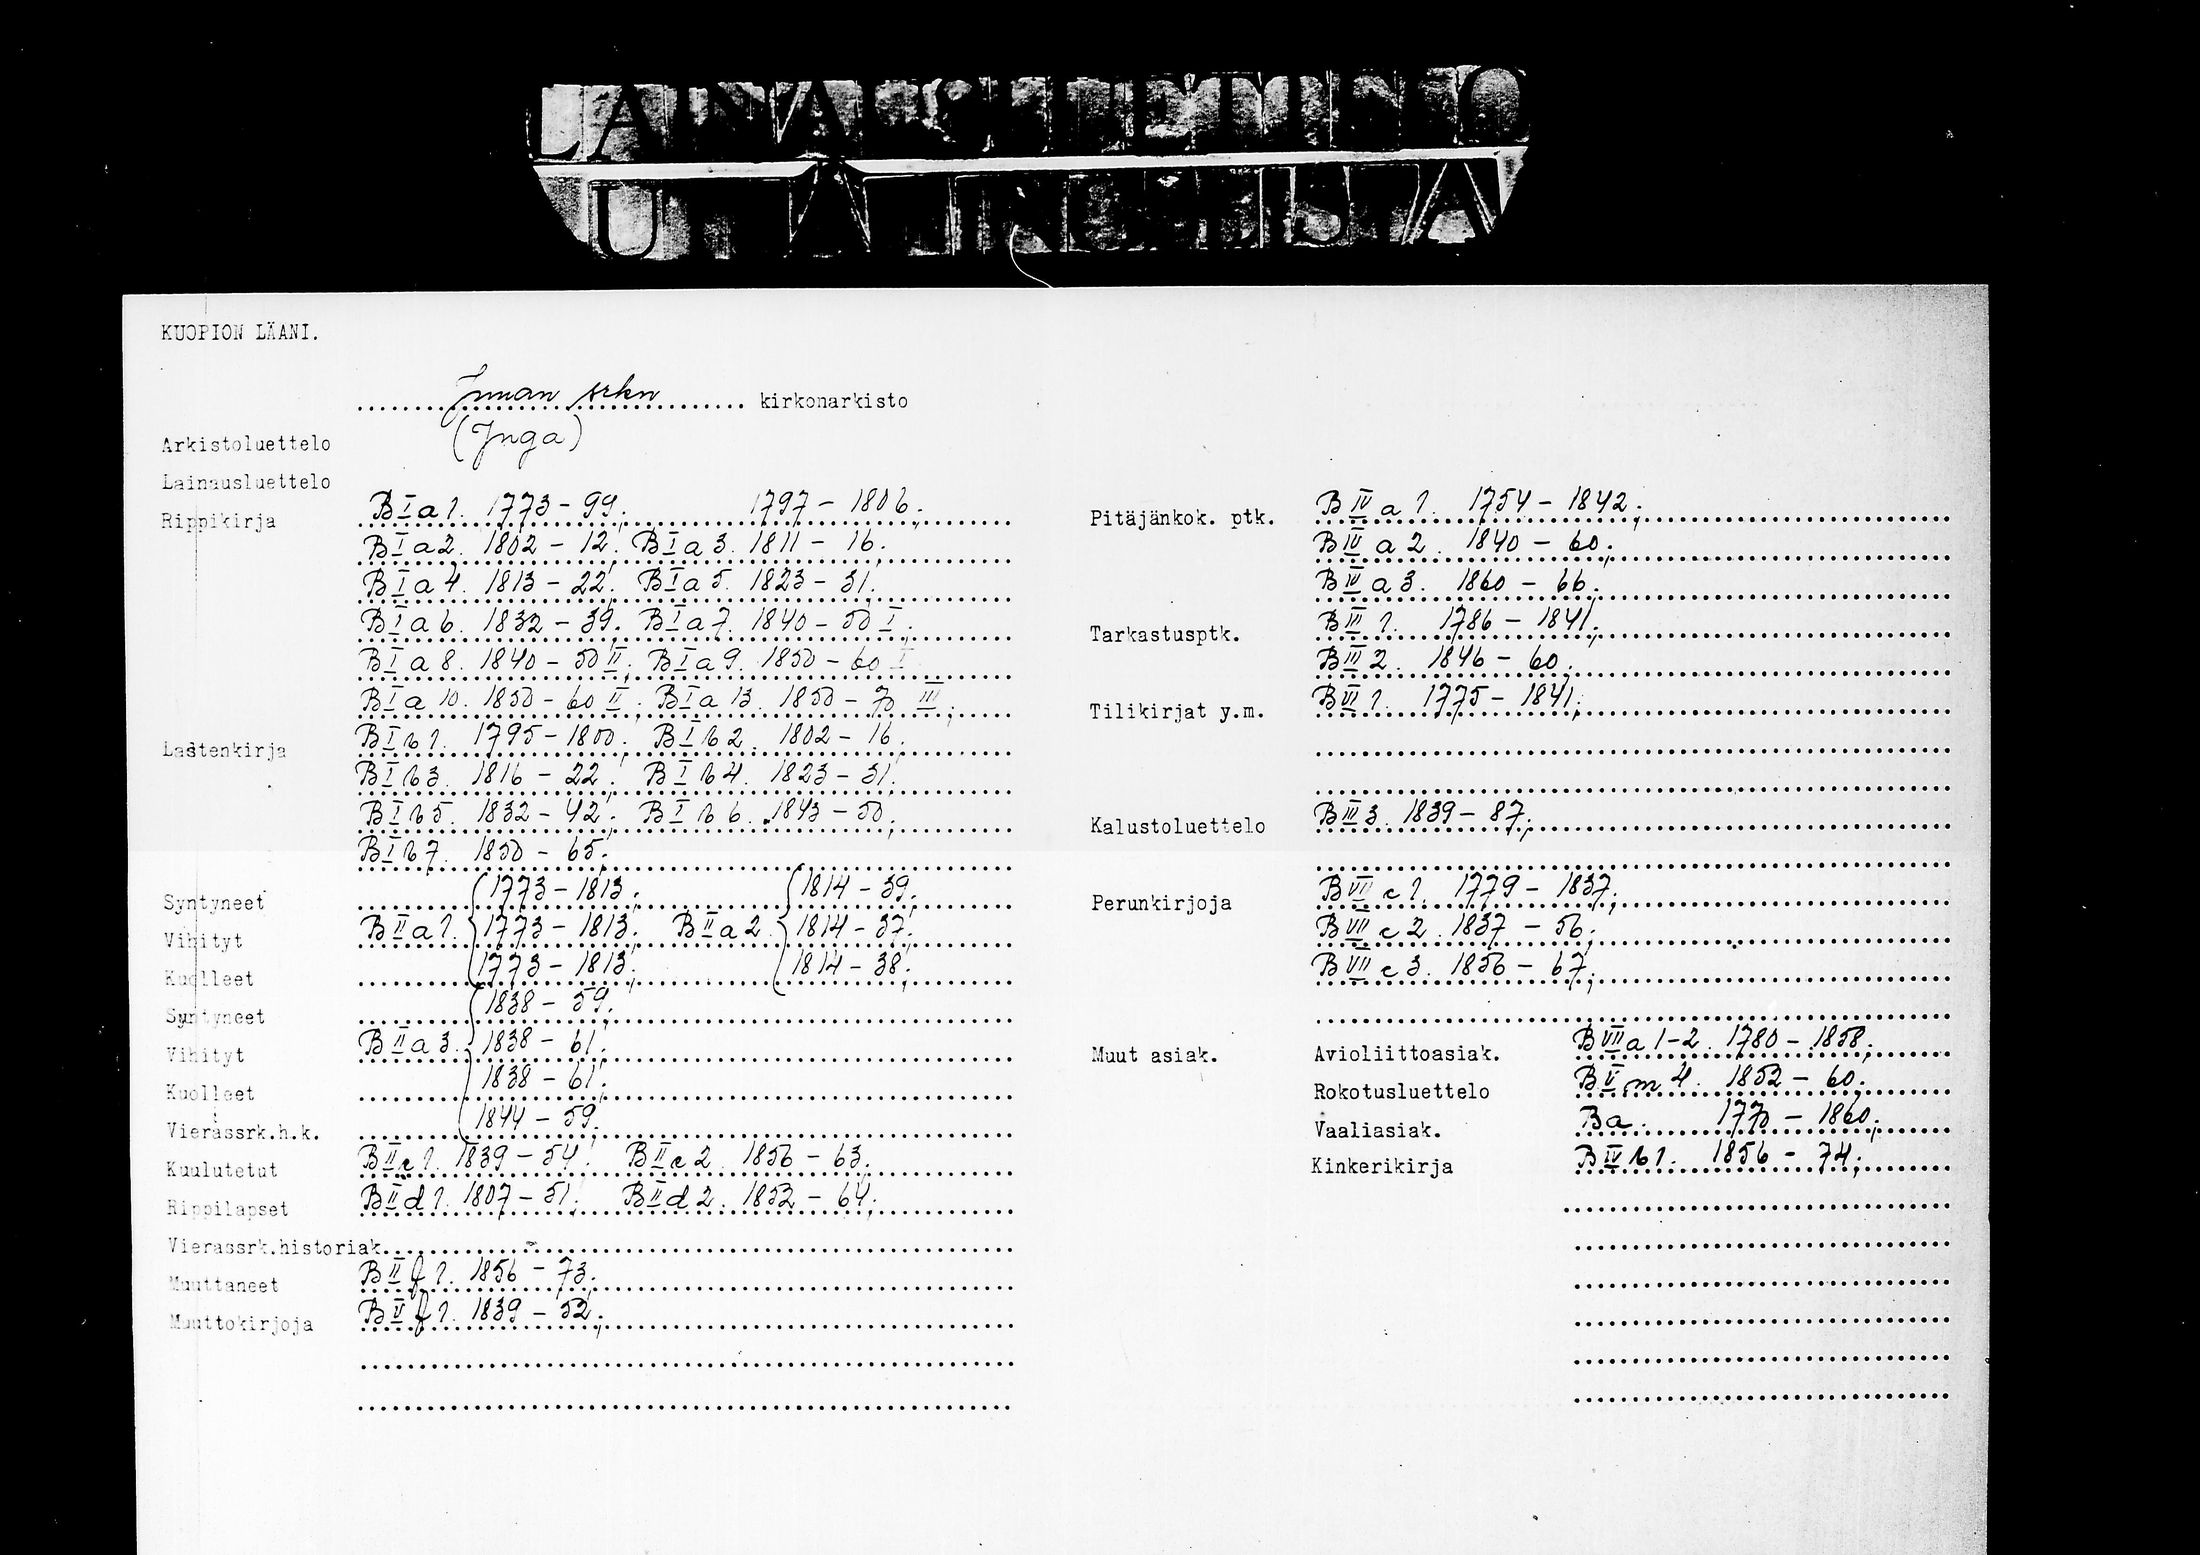 LAINAUSLUETTELO
KUOPION LÄÄNI.
Juuan srkn kirkonarkisto
(Juga)
Arkistoluettelo
Lainausluettelo
Rippikirja B I a 1. 1773 - 99; 1797 - 1806;
B I a 2. 1802 - 12; B I a 3. 1811 - 16;
B I a 4. 1813 - 22; B I a 5. 1823 - 31;
B I a 6. 1832 - 39; B I a 7. 1840 - 50 I;
B I a 8. 1840 - 50 II; B I a 9. 1850 - 60 I
B I a 10. 1850 - 60 II; B I a 13. 1850 - 70 III;
Lastenkirja B I b 1. 1795 - 1800; B I b 2. 1802 - 16;
B I b 3. 1816 - 22; B I b 4. 1823 - 31;
B I b 5. 1832 - 42; B I b 6. 1843 - 50;
B I b 7. 1850 - 65;
Syntyneet 1773 - 1813; 1814 - 39;
Vihityt B II a 1. 1773 - 1813; B II a 2. 1814 - 37;
Kuolleet 1773 - 1813; 1814 - 38;
Syntyneet 1838 - 59;
Vihityt B II a 3. 1838 - 61;
Kuolleet 1838 - 61;
Vierassrk.h.k. 1844 - 59;
Kuulutetut B II c 1. 1839 - 54; B II c 2. 1856 - 63;
Rippilapset B II d 1. 1807 - 51; B II d 2. 1852 - 64;
Vierassrk.historiak.
Muuttaneet B II f 1. 1856 - 73;
Muuttokirjoja B V f 1. 1839 - 52;
Pitäjänkok. ptk. B IV a 1. 1754 - 1842;
B IV a 2. 1840 - 60;
B IV a 3. 1860 - 66;
Tarkastusptk. B III 1. 1786 - 1841;
B III 2. 1846 - 60;
Tilikirjat y.m. B VI 1. 1775 - 1841;
Kalustoluettelo B III 3. 1839 - 87;
Perunkirjoja B VII c 1. 1779 - 1837;
B VII c 2. 1837 - 56;
B VII c 3. 1856 - 67;
Muut asiak. Avioliittoasiak. B VII a 1-2. 1780 - 1858;
Rokotusluettelo B V m 4. 1852 - 60;
Vaaliasiak. Ba. 1770 - 1860;
Kinkerikirja B IV b 1. 1856 - 74;